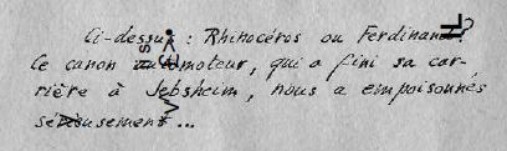 Ci-dessus : Rhinocéros ou Ferdinand ?
Ce canon automoteur, qui a fini sa car-
rière à Jebsheim, nous a empoisonnés
sérieusement ...